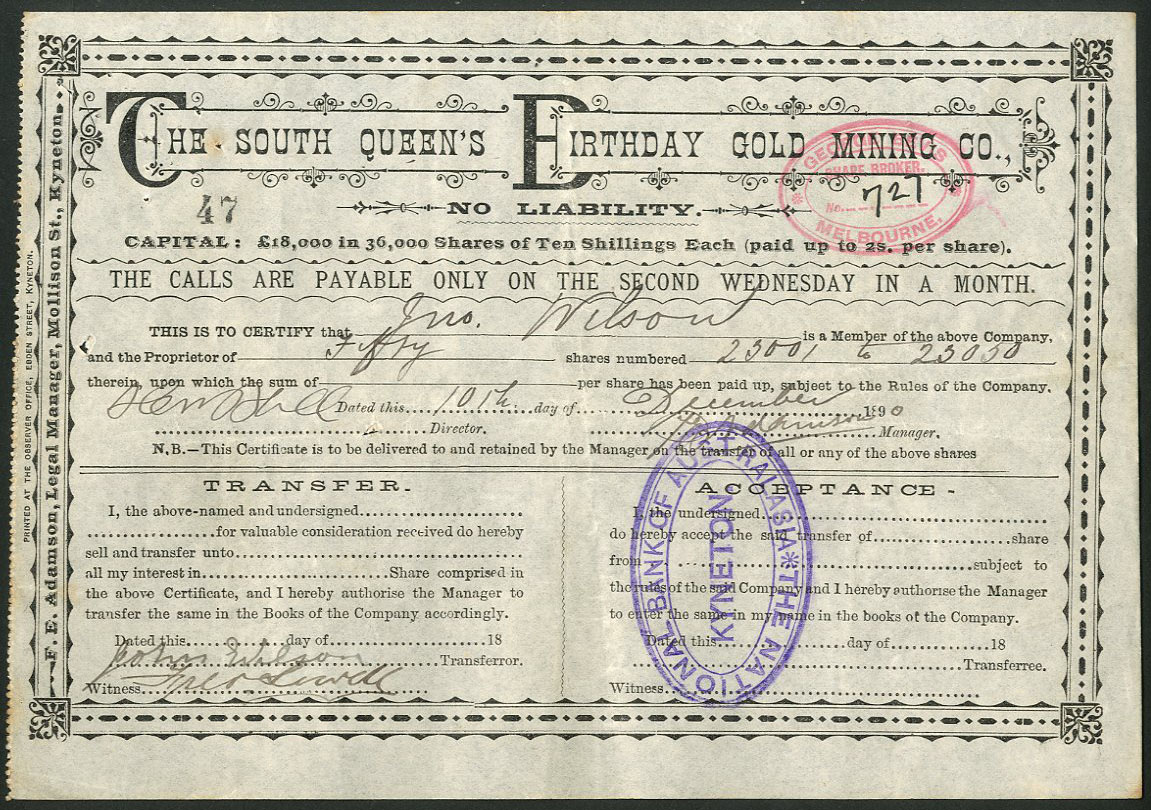 THE SOUTH QUEEN'S BIRTHDAY GOLD MINING CO.,
SHARE BROKER.
No. 727
MELBOURNE.
47
NO LIABILITY.
CAPITAL: £18,000 in 36,000 Shares of Ten Shillings Each (paid up to 2s. per share).
THE CALLS ARE PAYABLE ONLY ON THE SECOND WEDNESDAY IN A MONTH.
THIS IS TO CERTIFY that Jno. Wilson is a Member of the above Company,
and the Proprietor of Fifty shares numbered 23001 to 23050
therein, upon which the sum of per share has been paid up, subject to the Rules of the Company.
Dated this 10th day of December 1890
Director. Adamson Manager.
N.B.—This Certificate is to be delivered to and retained by the Manager on the transfer of all or any of the above shares
TRANSFER.
I, the above-named and undersigned
for valuable consideration received do hereby
sell and transfer unto
all my interest in Share comprised in
the above Certificate, and I hereby authorise the Manager to
transfer the same in the Books of the Company accordingly.
Dated this day of 18
John Wilson Transferror.
Witness
ACCEPTANCE -
I, the undersigned
do hereby accept the said transfer of share
from subject to
the rules of the said Company and I hereby authorise the Manager
to enter the same in my name in the books of the Company.
Dated this day of 18
Transferree.
Witness
THE NATIONAL BANK OF AUSTRALASIA
KYNETON
F. E. Adamson, Legal Manager, Mollison St., Kyneton.
PRINTED AT THE OBSERVER OFFICE, EBDEN STREET, KYNETON.